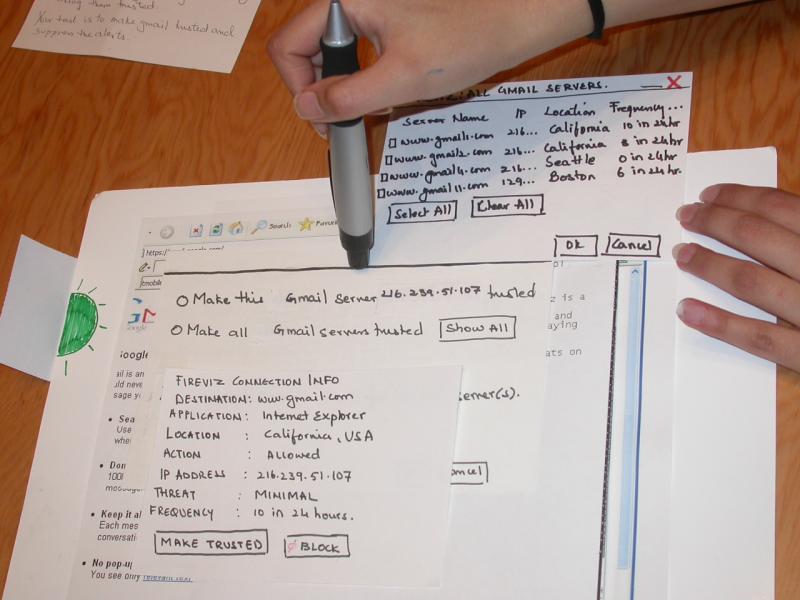 them trusted.
Your task is to make gmail trusted and
suppress the alerts.
: ALL GMAIL SERVERS.
Server Name IP Location Frequency...
www.gmail1.com 216... California 10 in 24hr
www.gmail2.com 216... California 8 in 24hr
www.gmail4.com 216... Seattle 0 in 24hr
www.gmail11.com 129... Boston 6 in 24hr.
Select All Clear All
OK Cancel
Search Favori
https://
Make this Gmail Server 216.239.51.107 trusted
Make all Gmail servers trusted Show All
z is a
and
aying
ats on
Google
erver(s).
ail is an
uld neve
sage y
Sea
Use
whe
Don
Keep it al
Each mes
conversati
No pop-up
You see only relevant text
FIREVIZ CONNECTION INFO
DESTINATION: www.gmail.com
APPLICATION: Internet Explorer
LOCATION : California, USA
ACTION : Allowed
IP ADDRESS : 216.239.51.107
THREAT : MINIMAL
FREQUENCY : 10 in 24 hours.
MAKE TRUSTED BLOCK
ancel